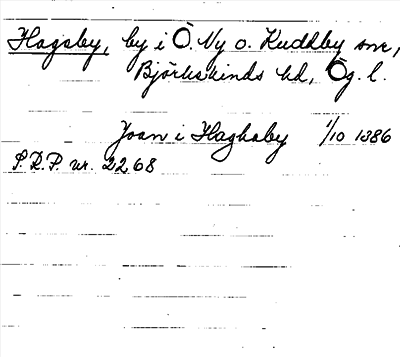 Hagsby, by i Ö. Ny o. Kuddby snr,
Björkekinds hd, Ög. l.
Joan i Haghaby 1/10 1386
S.R.P. nr. 2268